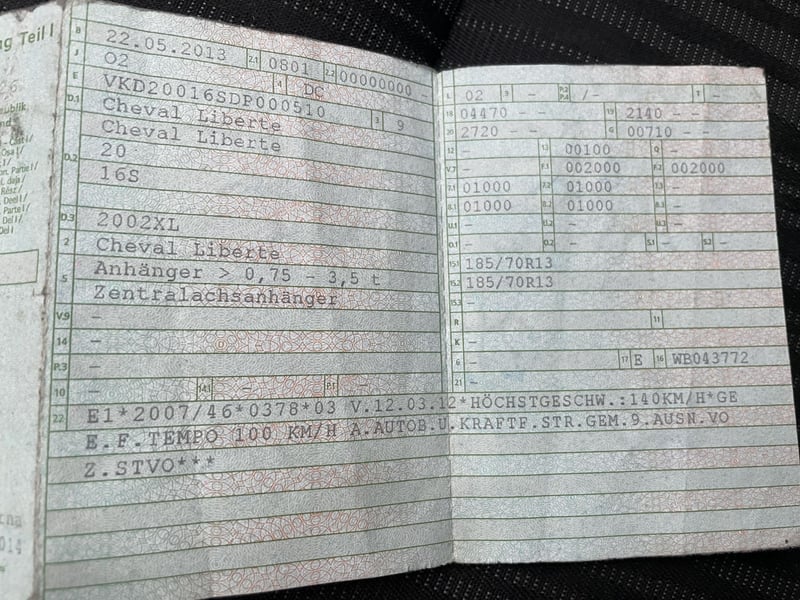 g Teil I
B 22.05.2013 2.1 0801 2.2 00000000
J O2 4 DC
E VKD20016SDP000510 3 9
D.1 Cheval Liberte
Cheval Liberte
D.2 20
16S
D.3 2002XL
2 Cheval Liberte
5 Anhänger > 0,75 - 3,5 t
Zentralachsanhänger
V.9 -
14 -
P.3 -
10 - 14.1 - P.1 -
L 02 9 - P.2 P.4 /- T -
18 04470 - - 19 2140 - -
20 2720 - - G 00710 - -
12 - 13 00100 Q -
V.7 - F.1 002000 F.2 002000
7.1 01000 7.2 01000 7.3 -
8.1 01000 8.2 01000 8.3 -
U.1 - U.2 - U.3 -
O.1 - O.2 - S.1 - S.2 -
15.1 185/70R13
15.2 185/70R13
15.3 -
R - 11 -
K -
6 - 17 E 16 WB043772
21 -
22 E1*2007/46*0378*03 V.12.03.12*HÖCHSTGESCHW.:140KM/H*GE
E.F.TEMPO 100 KM/H A.AUTOB.U.KRAFTF.STR.GEM.9.AUSN.VO
Z.STVO***